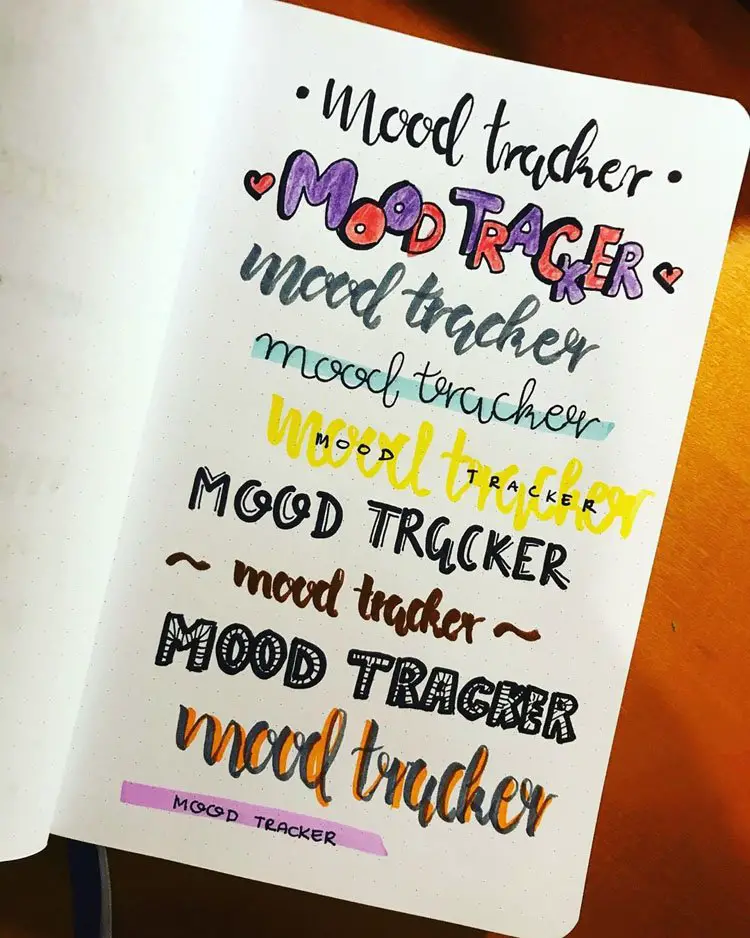 • mood tracker •
MOOD TRACKER
mood tracker
mood tracker
mood tracker
MOOD TRACKER
MOOD TRACKER
~ mood tracker ~
MOOD TRACKER
mood tracker
MOOD TRACKER